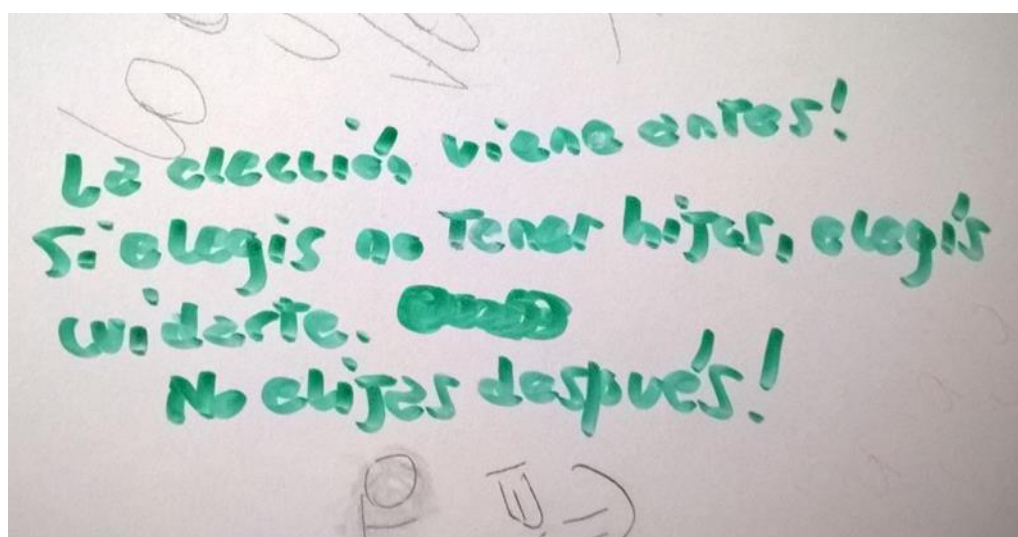 La elección viene antes!
Si elegis no tener hijos, elegís
cuidarte.
No elijas después!